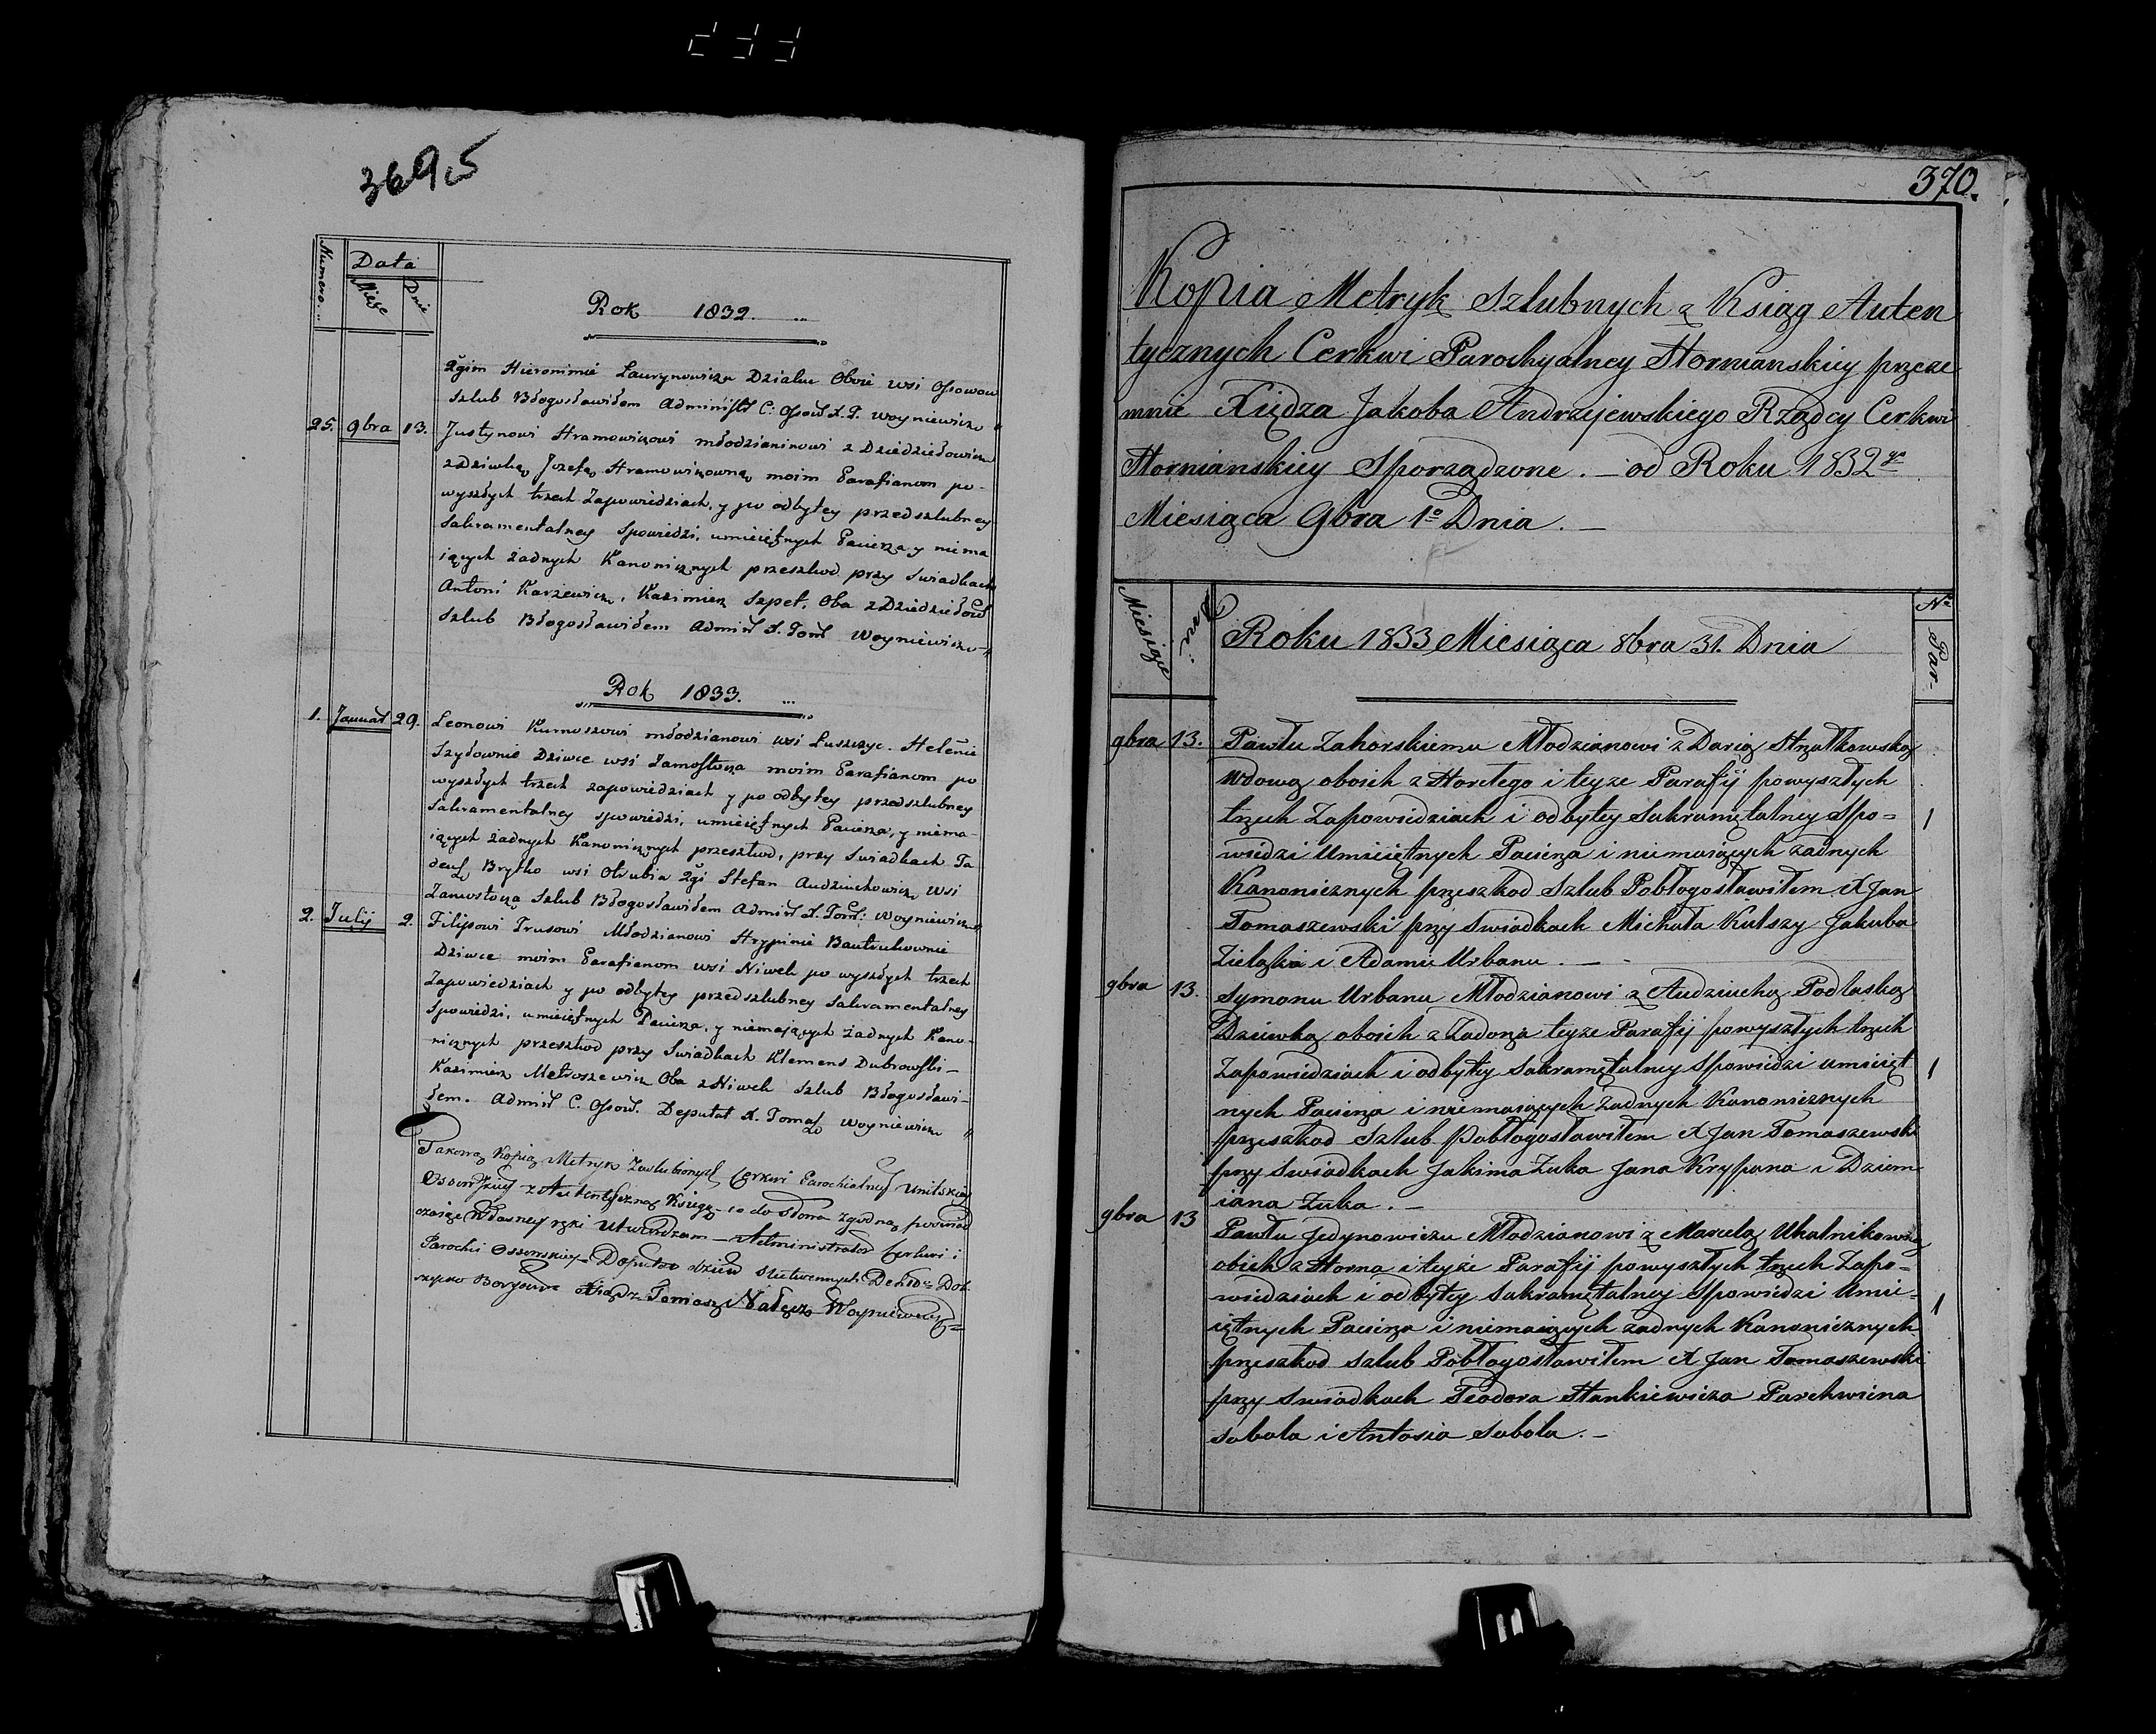 369,5
Numero
Data
Miesc
Dnie
Rok 1832.
2gim Hieronimie Laurynowiczu Działu Oboie wsi Osowow
Szlub Błogosławiłem Administ C: Osow X. T. Woyniewicz
25. 9bra 13. Justynowi Hramowiczowi młodzianinowi z Dziedziełowicz
z Dziwką Jozefą Hramowiczowną moim Parafianom po-
wyszłych trzech Zapowiedziach, y po odbytey przedszlubney
Sakramentalney Spowiedzi, umieiętnych Pacierza y niema
iących żadnych Kanonicznych przeszkod przy Swiadkach
Antoni Karżewicz, Kazimierz Szpet. Oba z Dziedziełow
Szlub Błogosławiłem Admist X. Tom Woyniewicz
Rok 1833.
1. Januar 29. Leonowi Kumoszowi młodzianowi wsi Łuszczyc. Helenie
Szydownie Dziwce wsi Zamostocza moim Parafianom po
wyszłych trzech zapowiedziach y po odbytey przedszlubney
Sakramentalney spowiedzi, umieiętnych Pacierza, y niema-
iących żadnych Kanonicznych przeszkod, przy Swiadkach Ta
deusz Brytko wsi Otrubia 2gi Stefan Audziuchowicz wsi
Zamostocza Szlub Błogosławiłem Admist X. Tom: Woyniewicz
2. Julij 2. Filipowi Trusowi Młodzianowi Hrypinie Bautrukownie
Dziwce moim Parafianom wsi Niwek po wyszłych trzech
Zapowiedziach y po odbytey przedszlubney Sakramentalney
Spowiedzi, umieiętnych Pacierza, y niemających żadnych Kano-
nicznych przeszkod przy Swiadkach Klemens Dubrowski-
Kazimierz Matroszewicz Oba z Niwek Szlub Błogosławi-
łem. Admist C. Osow. Deputat X. Tomasz Woyniewicz
Takową Kopią Metryk Zaslubionych Cerkwi Parochialney Unitskiey
Ossowskiey z Autentyczną Księgą co do słowa zgodną
własney ręki Utwierdzam Administrator Cerkwi i
Parochii Ossowskiey
Xiądz Tomasz Nałęcz Woyniewicz
370.
Kopia Metryk Szlubnych z Ksiąg Auten
tycznych Cerkwi Parochyalney Hornianskiey przeze
mnie Xiędza Jakoba Andrzejewskiego Rządcy Cerkwi
Hornianskiey Sporządzone. — od Roku 1832go
Miesiąca 9bra 1o Dnia. —
Miesiące
Dni
No
Par-
Roku 1833 Miesiąca 8bra 31. Dnia
9bra 13. Pawłu Zahorskiemu Młodzianowi z Darią Strzałkowską
Wdową oboich z Horełego i teyze Parafij powyszłych
trzech Zapowiedziach i odbytey Sakramętalney Spo=
wiedzi Umieiętnych Pacierza i niemaiących zadnych
Kanonicznych przeszkod Szlub Pobłogosławiłem X Jan
Tomaszewski przy Swiadkach Michała Kulszy Jakuba
Zielązka i Adamie Urbanu. — -
1
9bra 13. Symonu Urbanu Młodzianowi z Audziuchą Podlaską
Dziewką oboich z Zadorza teyze Parafij powyszłych trzech
Zapowiedziach i odbytey Sakramętalney Spowiedzi umieięt
nych Pacierza i niemaiących zadnych Kanonicznych
przeszkod Szlub Pobłogosławiłem X Jan Tomaszewski
przy Swiadkach Jakima Zuka Jana Krypana i Dziem
iana Zuka. —
1
9bra 13 Pawłu Jedynowiczu Młodzianowi z Marcelą Ukalnikowną
obich z Horna i teyże Parafij powyszłych trzech Zapo=
wiedziach i odbytey Sakramętalney Spowiedzi Umie=
iętnych Pacierza i niemaiących zadnych Kanonicznych
przeszkod szlub Pobłogosławiłem X Jan Tomaszewski
przy Swiadkach Teodora Stankiewicza Parchwiena
Sobola i Antosia Sobola. —
1